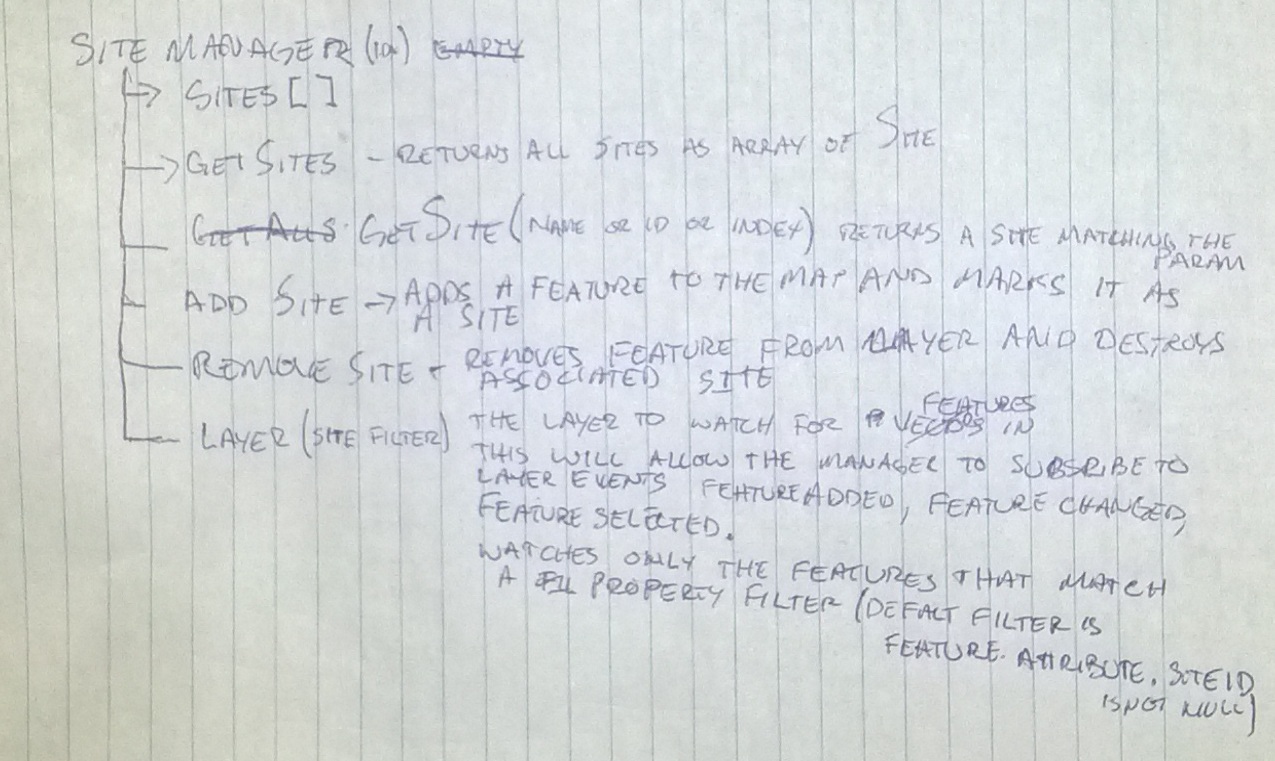 SITE MANAGER (id) EMPTY
SITES [ ]
GET SITES - RETURNS ALL SITES AS ARRAY OF SITE
GET ALLS GET SITE (NAME OR ID OR INDEX) RETURNS A SITE MATCHING THE
PARAM
ADD SITE → ADDS A FEATURE TO THE MAP AND MARKS IT AS
A SITE
REMOVE SITE - REMOVES FEATURE FROM LAYER AND DESTROYS
ASSOCIATED SITE
FEATURES
LAYER (SITE FILTER) THE LAYER TO WATCH FOR VECTORS IN
THIS WILL ALLOW THE MANAGER TO SUBSRIBE TO
LAYER EVENTS FEATUREADDED, FEATURE CHANGED,
FEATURE SELECTED.
WATCHES ONLY THE FEATURES THAT MATCH
A PROPERTY FILTER (DEFALT FILTER IS
FEATURE. ATTRIBUTE. SITEID
IS NOT NULL)